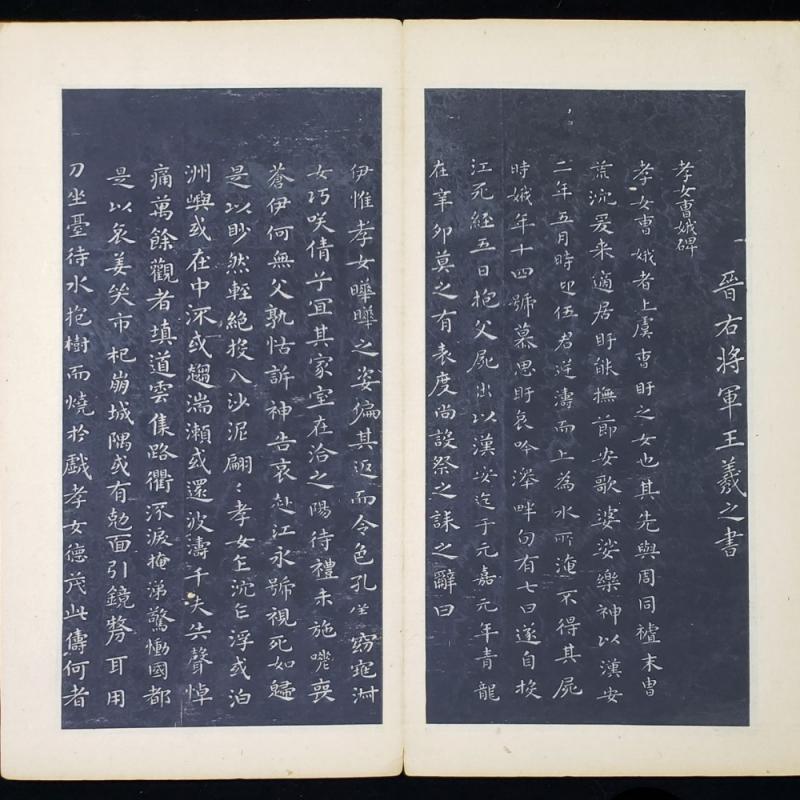 晉右將軍王羲之書
孝女曹娥碑
孝女曹娥者上虞曹盱之女也其先與周同祖末胄
荒沉爰来適居盱能撫節安歌婆娑樂神以漢安
二年五月時迎伍君逆濤而上為水所淹不得其屍
時娥年十四號慕思盱哀吟澤畔旬有七日遂自投
江死經五日抱父屍出以漢安迄于元嘉元年青龍
在辛卯莫之有表度尚設祭之誄之辭曰
伊惟孝女曄曄之姿偏其返而令色孔儀窈窕淑
女巧咲倩兮宜其家室在洽之陽待禮未施嗟喪
蒼伊何無父孰怙訴神告哀赴江永號視死如歸
是以眇然輕絕投入沙泥翩〻孝女乍沉乍浮或泊
洲嶼或在中流或趨湍瀨或還波濤千夫失聲悼
痛萬餘觀者填道雲集路衢流淚掩涕驚慟國都
是以哀姜哭市杞崩城隅或有勊面引鏡剺耳用
刀坐臺待水抱樹而燒於戲孝女德茂此儔何者